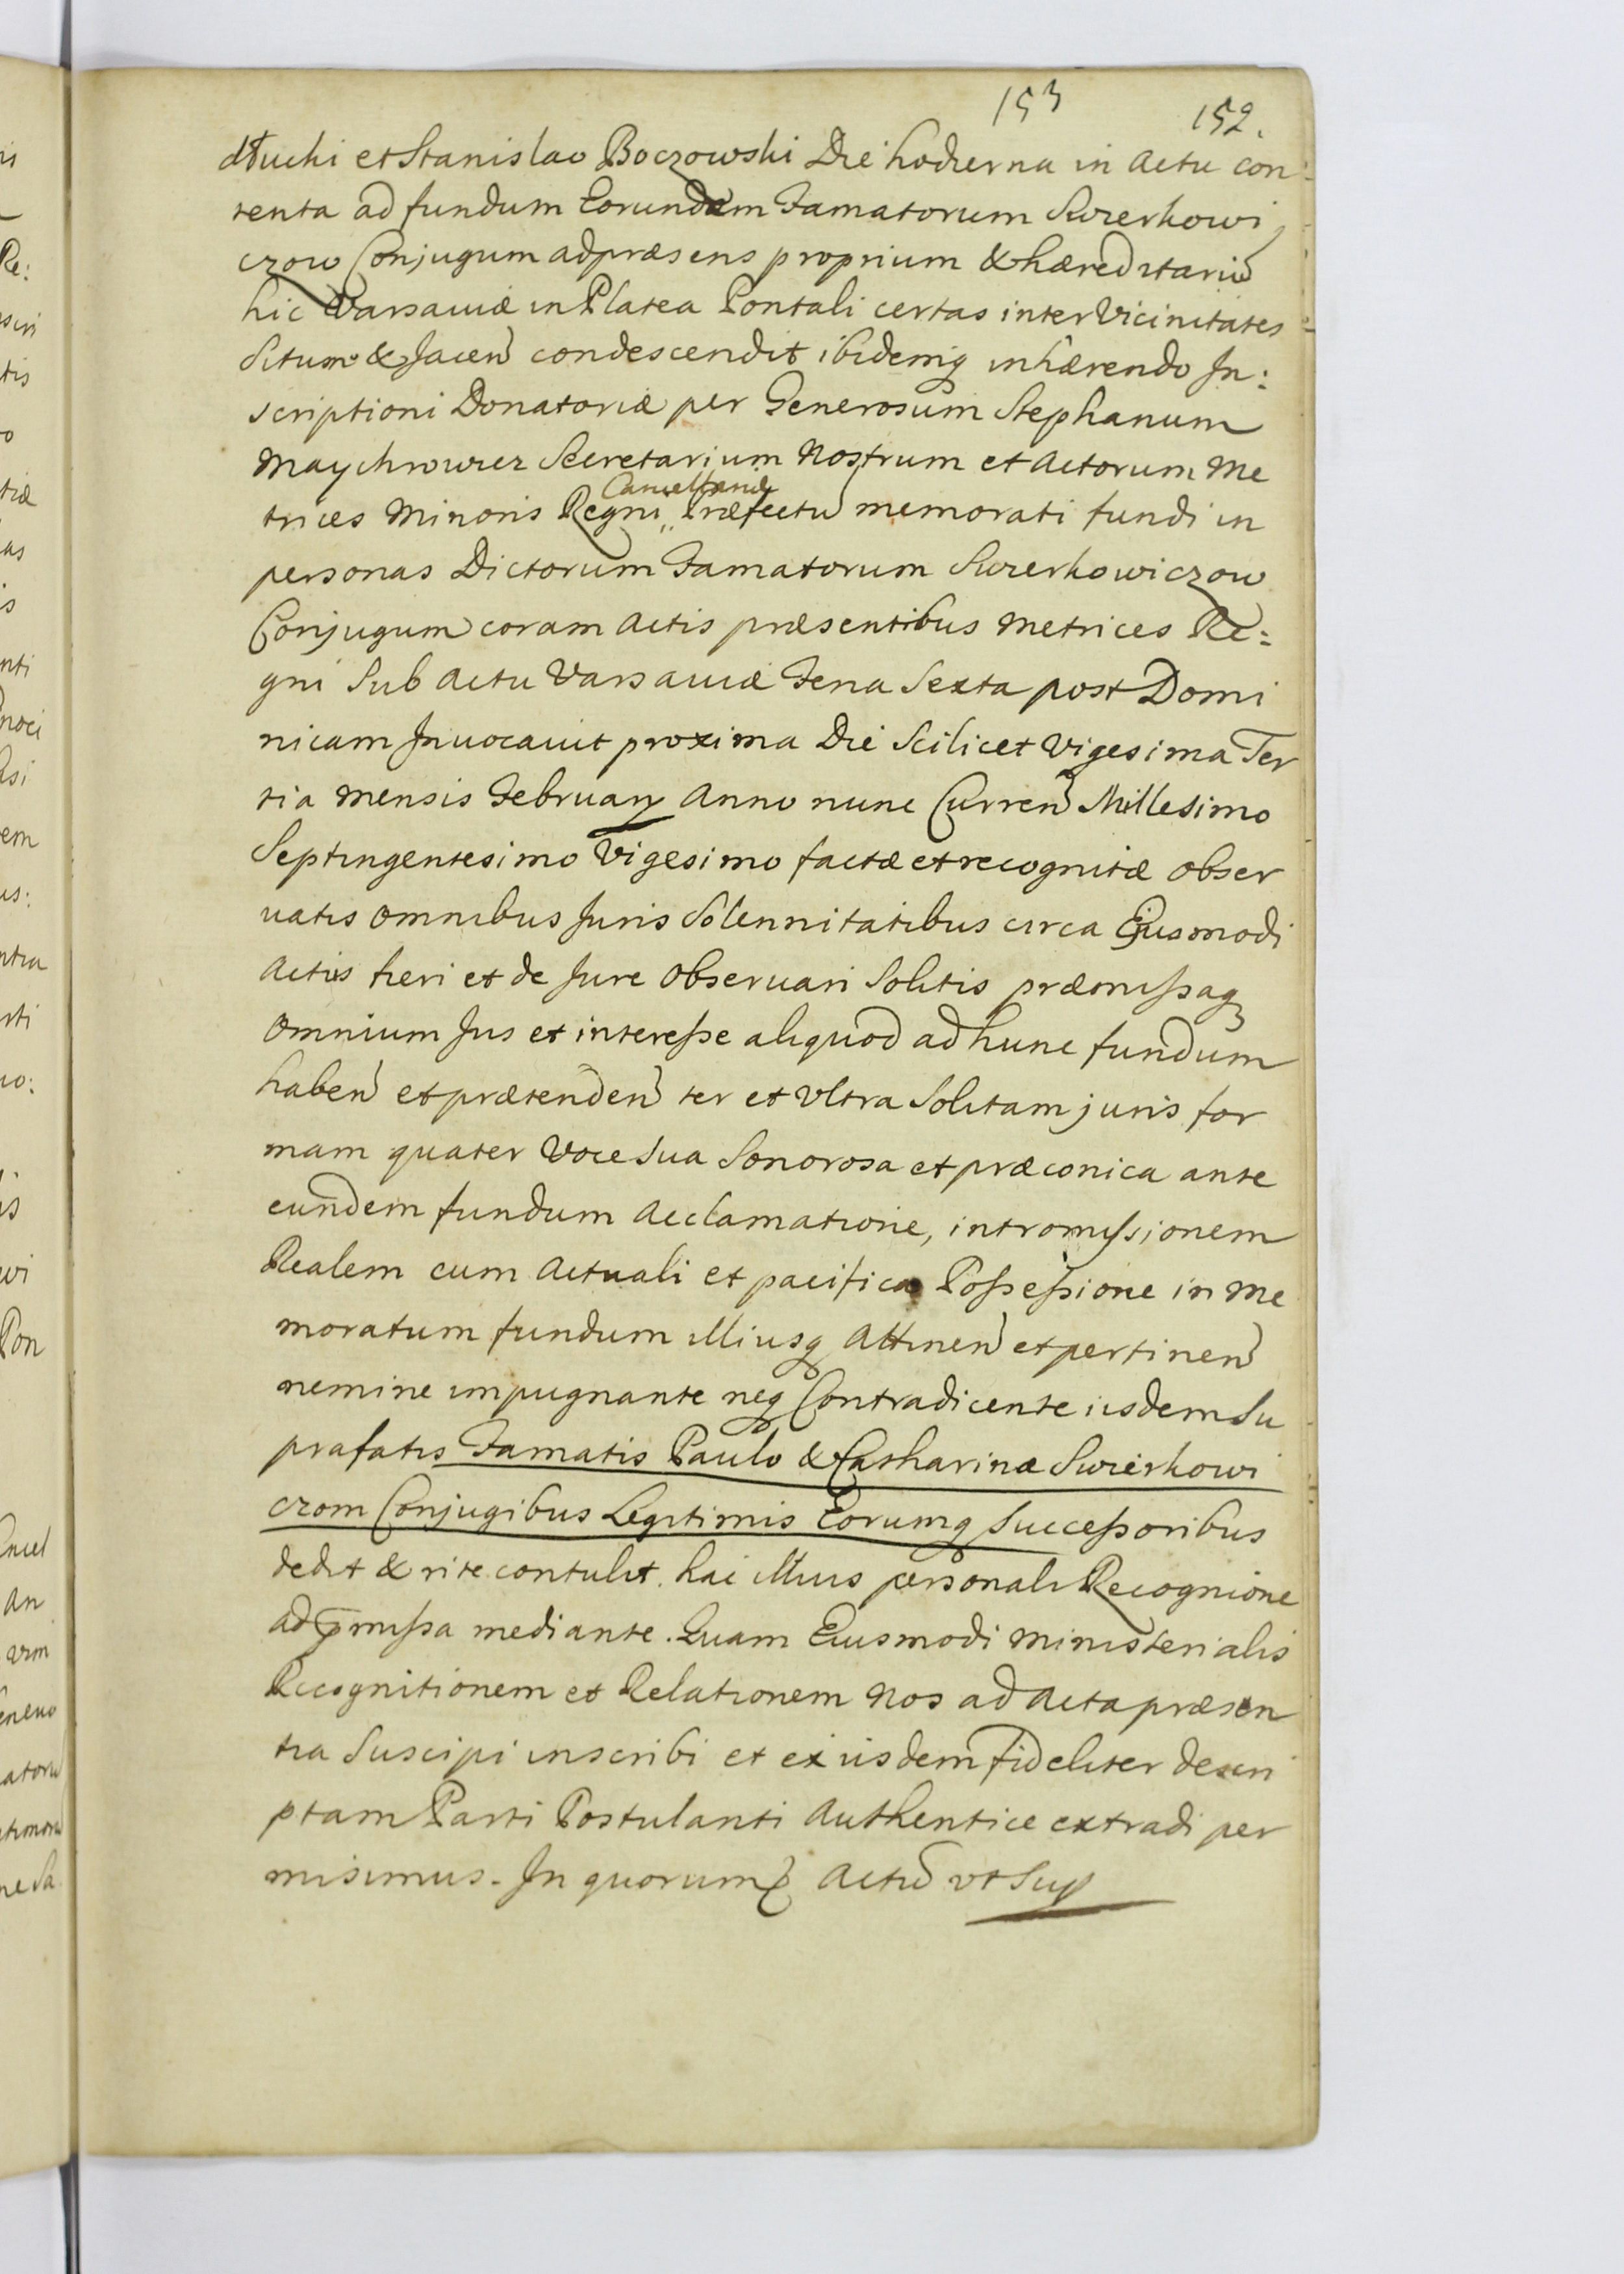 153 152.
dłuski et Stanislao Boczowski Die hodierna in Actu con:
tenta ad fundum Eorundem Famatorum Swierkowi
czow Conjugum adpræsens proprium & hæreditariū
hic Varsaviæ in Platea Pontali certas inter Vicinitates
Situm & Jacen̄ condescendit ibidemq inhærendo In:
scriptioni Donatoriæ per Generosum Stephanum
Maychrowicz Secretarium Nostrum et Actorum Me
Cancellariæ
trices Minoris Regni Præfectū memorati fundi in
personas Dictorum Famatorum Swierkowiczow
Conjugum coram Actis præsentibus Metrices Re:
gni Sub Actu Varsaviæ Feria Sexta post Domi
nicam Invocavit proxima Die Scilicet Vigesima Ter
tia Mensis February Anno nunc Curren̄ Millesimo
Septingentesimo Vigesimo factæ et recognitæ obser
vatis omnibus Juris Solennitatibus circa Ejusmodi
Actus fieri et de Jure observari Solitis præmissaq
omnium Jus et interesse aliquod ad hunc fundum
haben̄ et prætenden̄ ter et Ultra Solitam juris for
mam quater Voce Sua Sonorosa et præconica ante
eundem fundum Acclamatione, intromissionem
Realem cum Actuali et pacifica Possessione in Me
moratum fundum illiusq Attinen̄ et pertinen̄
nemine impugnante neq Contradicente iisdem Su
prafatis Famatis Paulo & Catharinæ Swierkowi
czom Conjugibus Legitimis Eorumq Successoribus
dedit & rite contulit. hac illius personali Recognione
ad p̄missa mediante. Quam Eiusmodi Ministerialis
Recognitionem et Relationem Nos ad Acta præsen
tia Suscipi inscribi et ex iisdem fideliter descri
ptam Parti Postulanti Authentice extradi per
misimus. In quorum Actū vt Sup